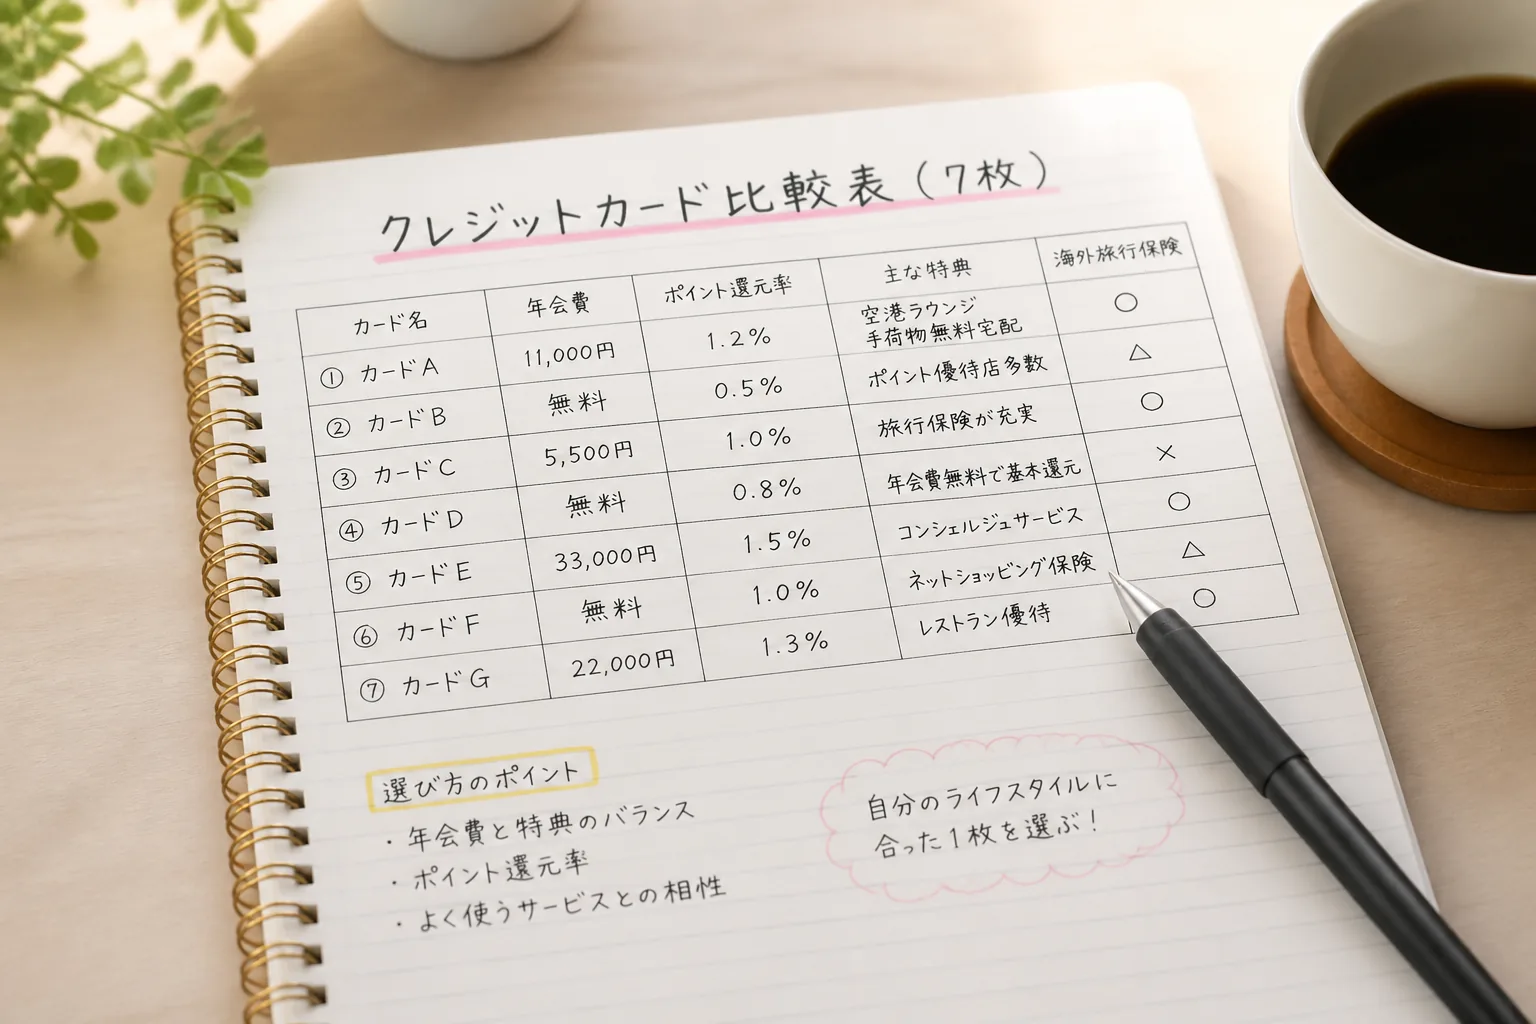 クレジットカード比較表(7枚)
カード名 年会費 ポイント還元率 主な特典 海外旅行保険
① カードA 11,000円 1.2% 空港ラウンジ 手荷物無料宅配 ○
② カードB 無料 0.5% ポイント優待店多数 △
③ カードC 5,500円 1.0% 旅行保険が充実 ○
④ カードD 無料 0.8% 年会費無料で基本還元 ×
⑤ カードE 33,000円 1.5% コンシェルジュサービス ○
⑥ カードF 無料 1.0% ネットショッピング保険 △
⑦ カードG 22,000円 1.3% レストラン優待 ○
選び方のポイント
・年会費と特典のバランス
・ポイント還元率
・よく使うサービスとの相性
自分のライフスタイルに
合った1枚を選ぶ!